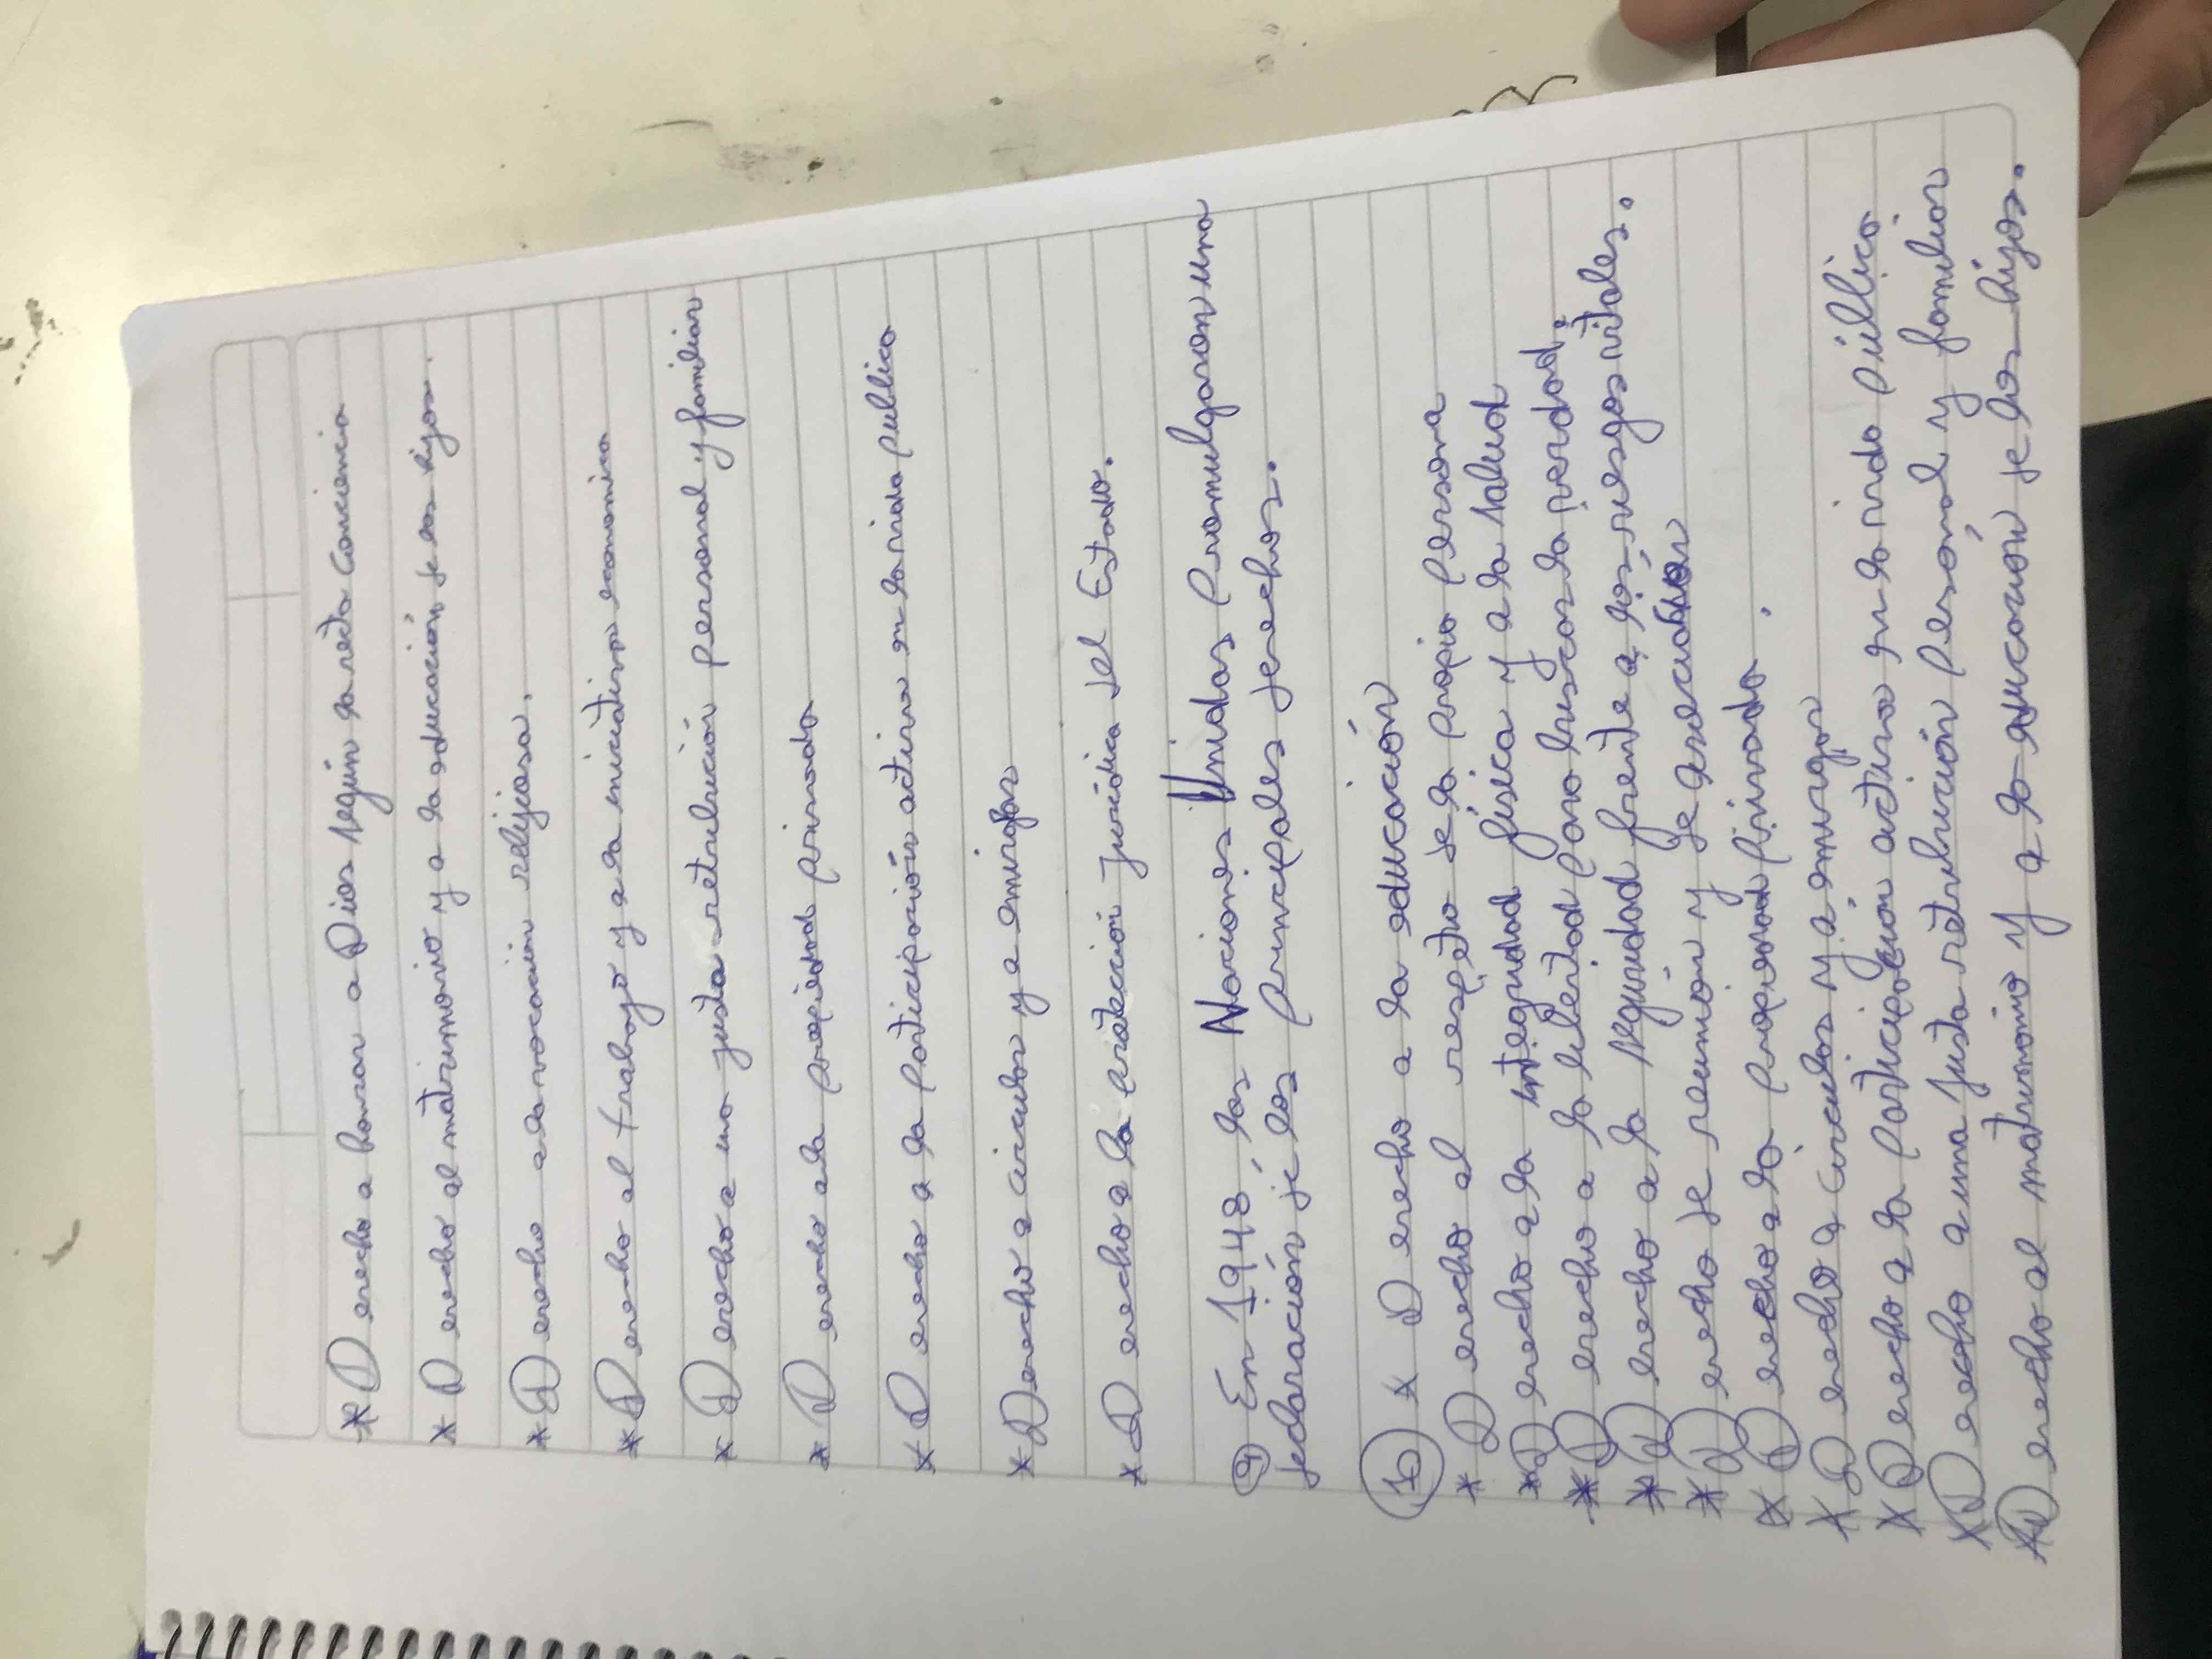 * Derecho a honrar a Dios según la recta conciencia
* Derecho al matrimonio y a la educación de los hijos.
* Derecho a la vocación relijiosa.
* Derecho al trabajo y a la iniciativa economica
* Derecho a una justa retribución personal y familiar
* Derecho a la propiedad privada
* Derecho a la participación activa en la vida publica
* Derecho a circular y a emigrar
* Derecho a la protección jurídica del Estado.
9) En 1948 las Naciones Unidas promulgaron una
declaración de los principales derechos.
10) * Derecho a la educación
* Derecho al respeto de la propia persona
* Derecho a la integridad física y a la salud
* Derecho a la libertad para buscar la verdad.
* Derecho a la seguridad frente a los riesgos vitales.
* Derecho de reunión y de asociación
* Derecho a la propiedad privada.
* Derecho a circular y a emigrar
* Derecho a la participación activa en la vida pública
* Derecho a una justa retribución personal y familiar
* Derecho al matrimonio y a la educación de los hijos.